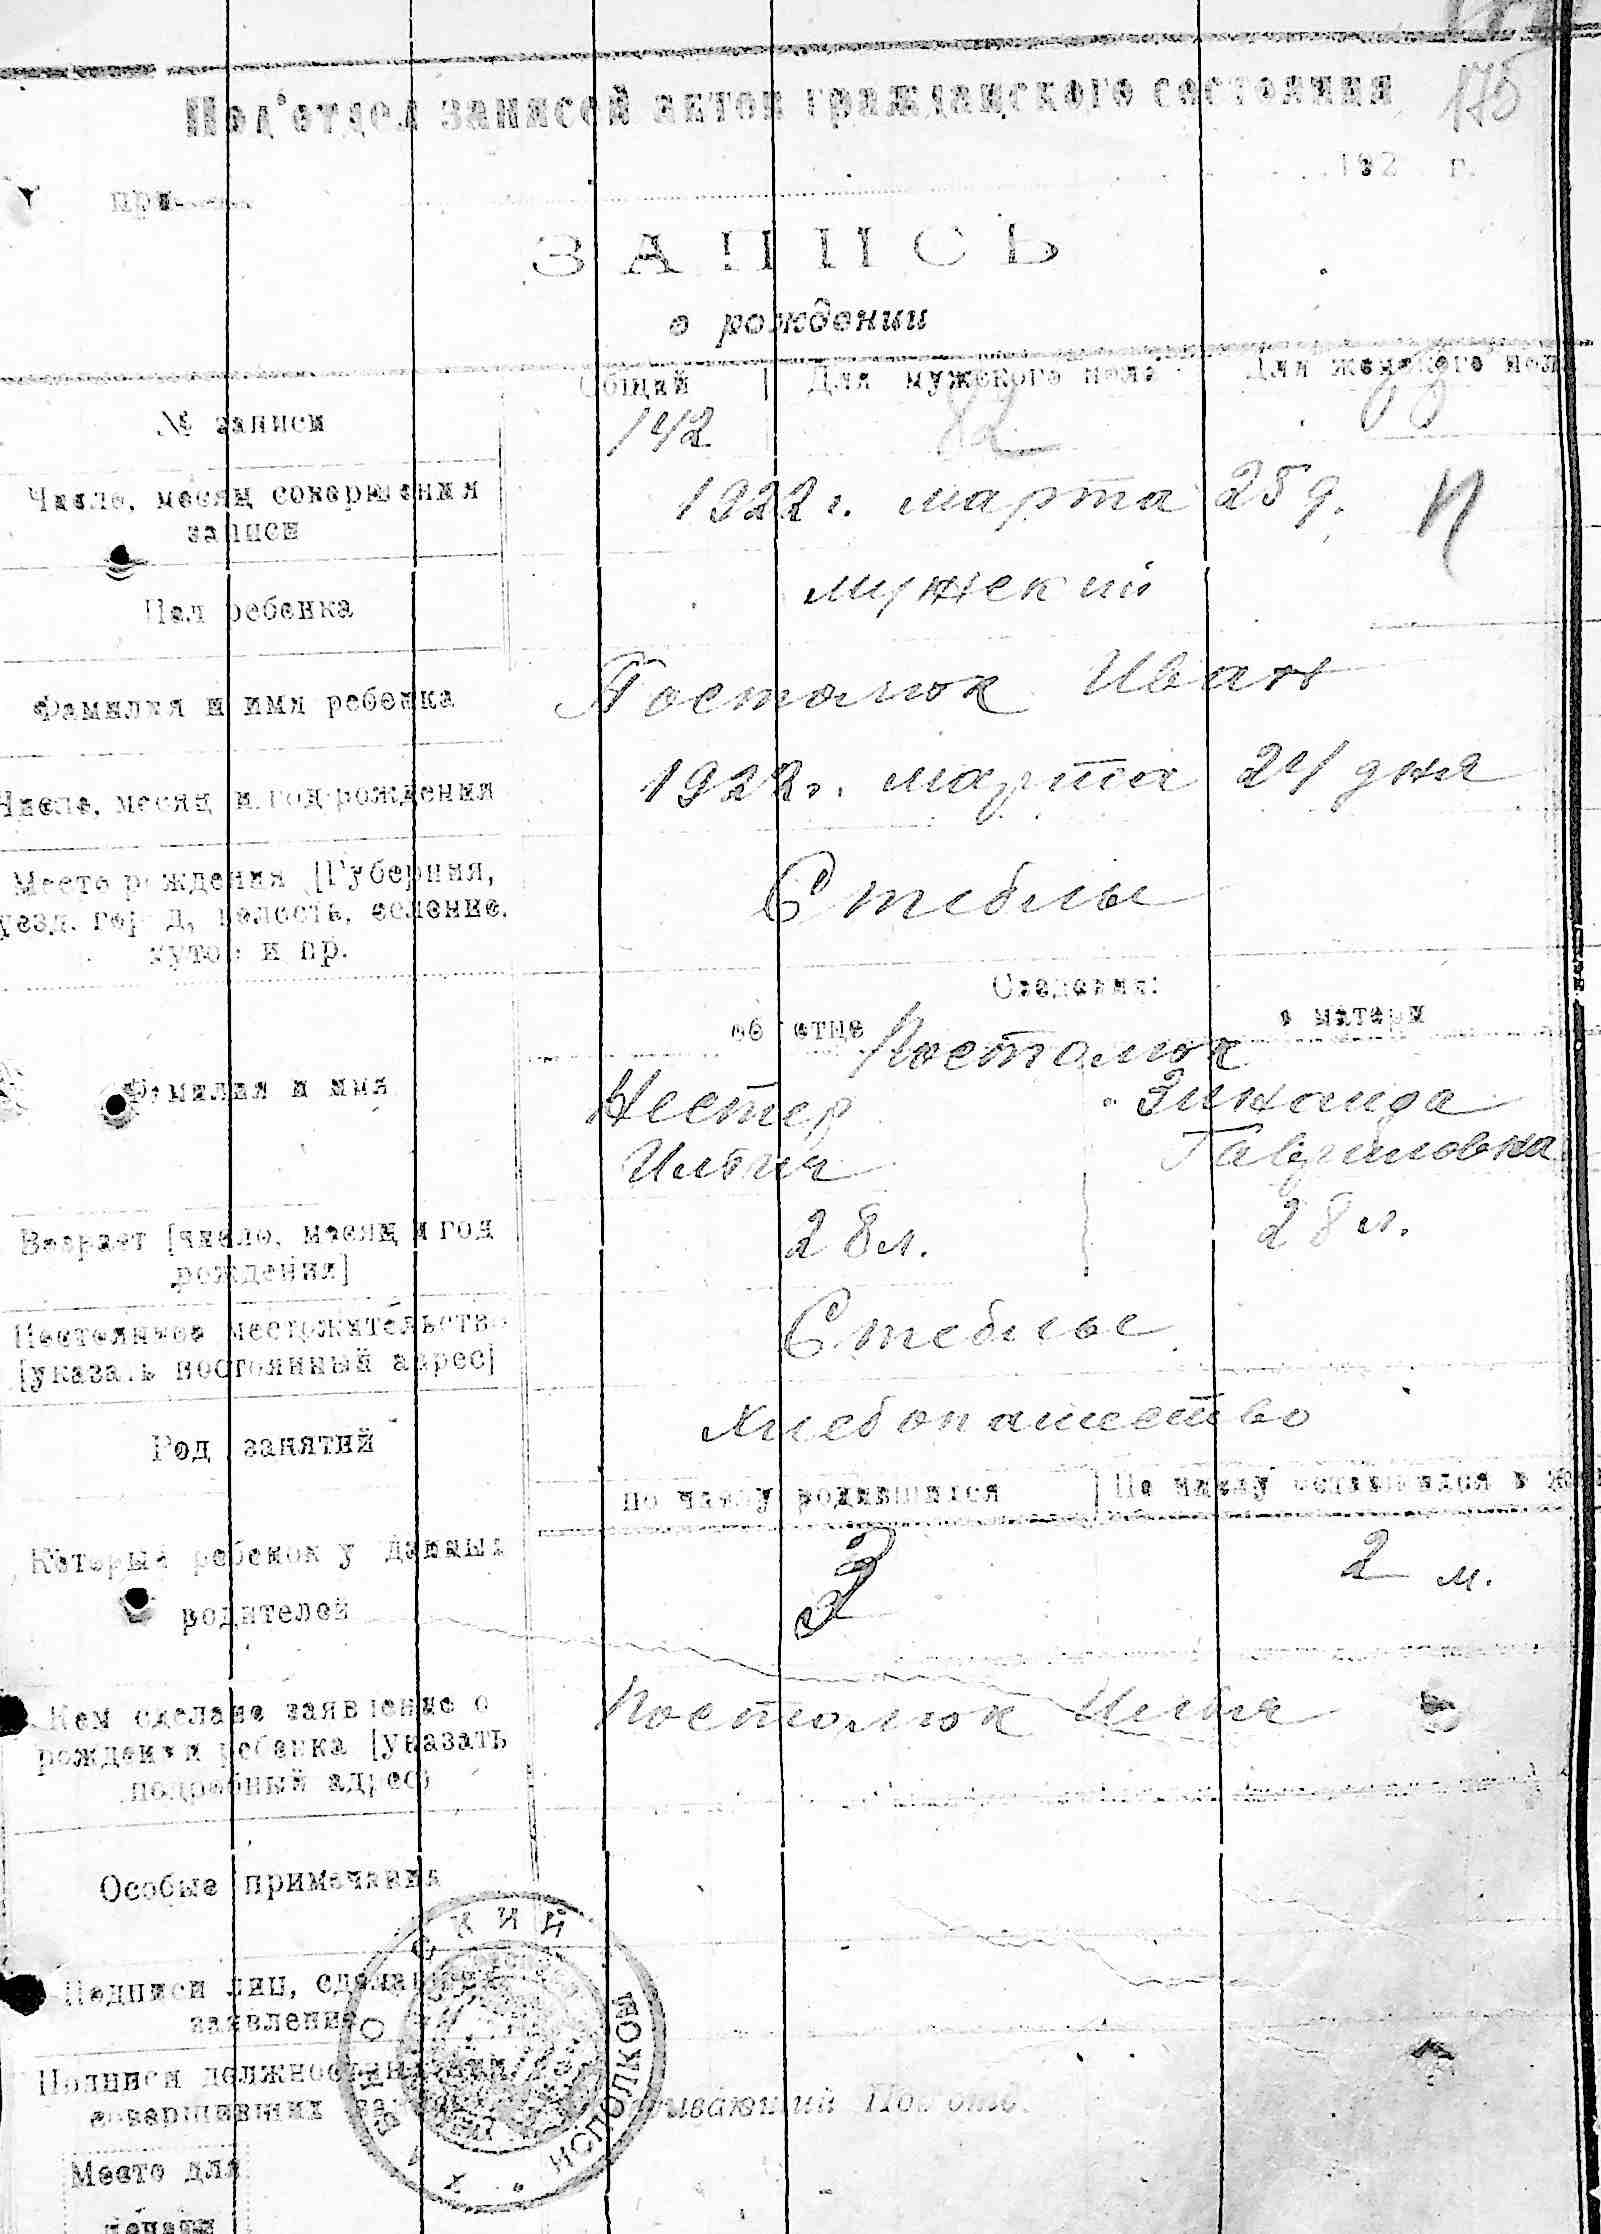 Под'отдел записей актов гражданского состояния
175
при
192 г.
ЗАПИСЬ
о рождении
Общий Для мужского пола Для женского пола
№ записи 142 82
Число, месяц совершения записи 1922 г. марта 25 д. П
Пол ребенка мужский
Фамилия и имя ребенка Постолюк Иван
Число, месяц и год рождения 1922 г. марта 24 дня
Место рождения [Губерния,
уезд, город, волость, селение,
хутор и пр.
Стеблы
Сведения:
об отце о матери
Постолюк
Фамилия и имя Нестер Зинаида
Ильич Гавриловна
Возраст [число, месяц и год
рождения]
28 л. 28 л.
Постоянное местожительство
[указать постоянный адрес]
Стеблы
Род занятий Хлебопашество
по числу родившихся По числу оставшихся в
Который ребенок у данных
родителей
3 2 м.
Кем сделано заявление о
рождении ребенка [указать
подробный адрес]
Постолюк Илья
Особые примечания
Подписи лиц, сделавших
заявление
Подписи должностных лиц,
совершивших
Под'отд.
ИСПОЛКОМ
Место для
печати